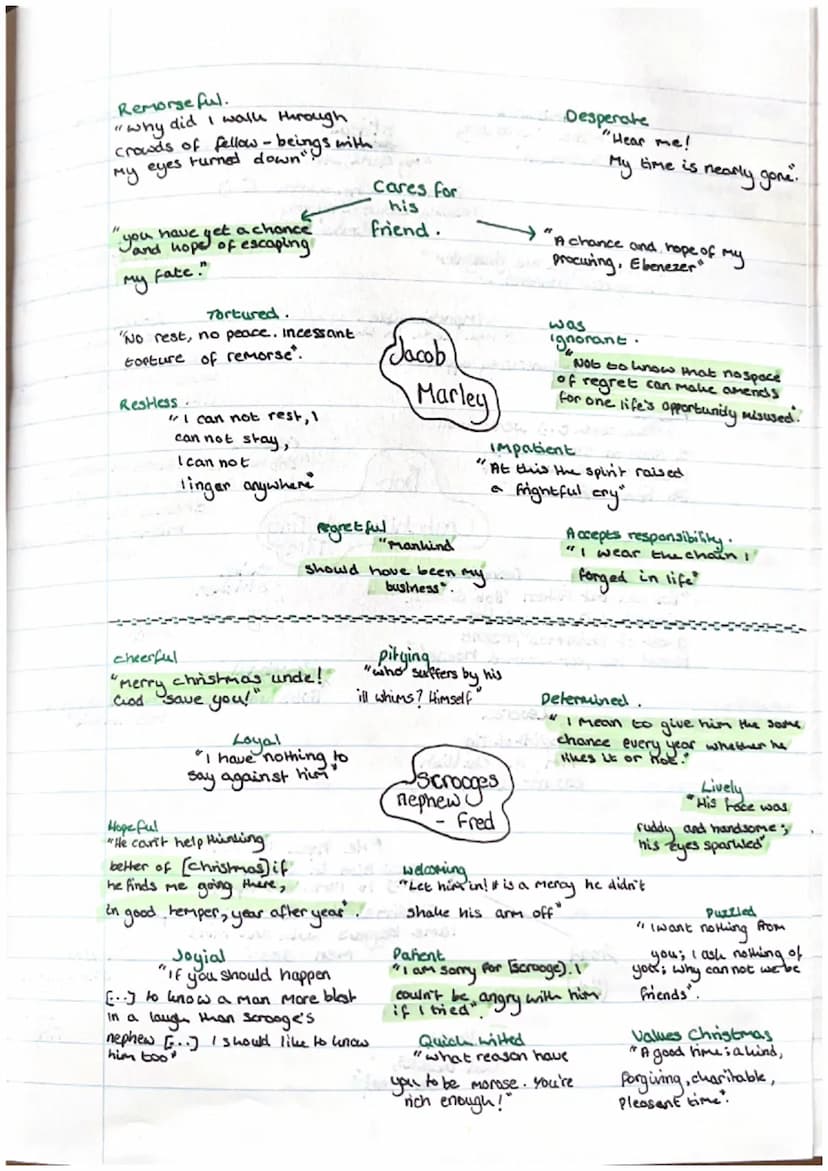 Remorseful.
"Why did I walk through
crowds of fellow-beings with
my eyes turned down".
Desperate
"Hear me!
My time is nearly gone".
Cares for
his
friend.
"you have yet a chance
and hope of escaping
my fate."
"A chance and hope of my
procuring, Ebenezer"
Tortured.
"No rest, no peace. Incessant
torture of remorse".
Jacob
Marley
was
ignorant.
"Not to know that no space
of regret can make amends
for one life's opportunity misused".
Restless.
"I can not rest, I
can not stay,
I can not
linger anywhere"
Impatient
"At this the spirit raised
a frightful cry"
regretful
"Mankind
should have been my
business".
Accepts responsibility.
"I wear the chain I
forged in life"
cheerful
"Merry christmas uncle!
God save you!"
pitying
"who suffers by his
ill whims? Himself"
Determined.
"I mean to give him the same
chance every year whether he
likes it or not."
Loyal
"I have nothing to
say against him"
Scrooges
nephew
- Fred
Lively
"His face was
ruddy and handsome;
his eyes sparkled"
Hopeful
"He can't help thinking
better of [christmas] if
he finds me going there,
in good temper, year after year".
welcoming
"Let him in! It is a mercy he didn't
shake his arm off"
Puzzled
"I want nothing from
you; I ask nothing of
you; why can not we be
friends".
Joyial
"if you should happen
[...] to know a man more blest
in a laugh than scrooge's
nephew [...] I should like to know
him too"
Patient
"I am sorry for [scrooge). I
couldn't be angry with him
if I tried".
Quick witted
"what reason have
you to be morose. You're
rich enough!"
Values Christmas
"A good time; a kind,
forgiving, charitable,
pleasent time".